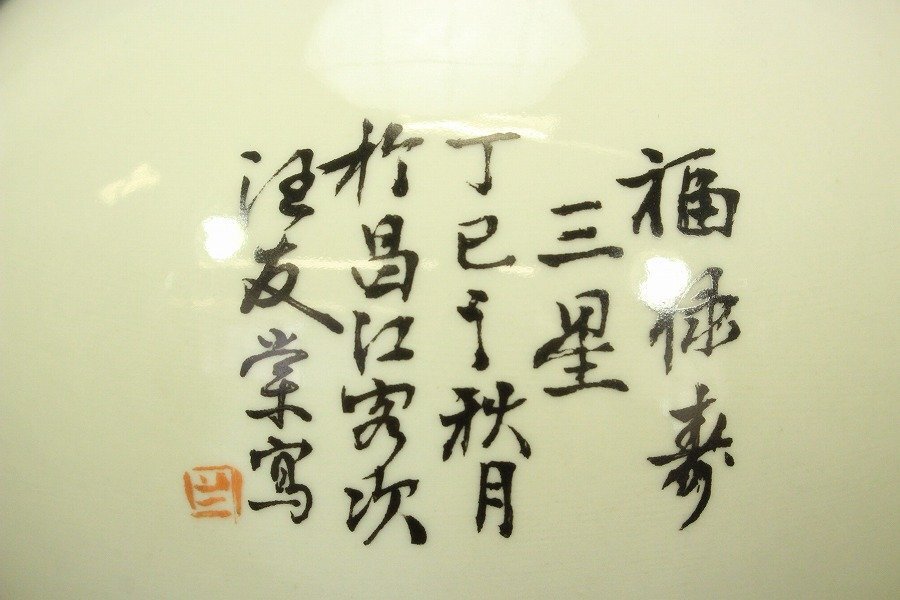 福禄寿
三星
丁巳之秋月
於昌江客次
汪友棠寫